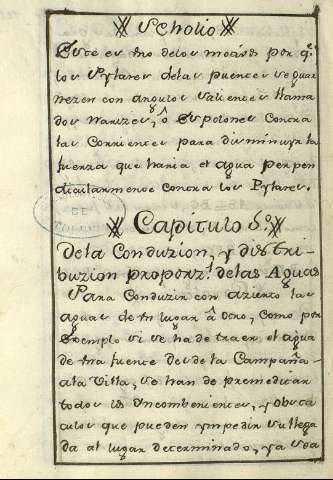 Scholio
Este es uno delos motivos por q.e
los Pylares delas puentes se guar
nezen con angulos salientes llama
dos Nauzes, ô Espolones Contra
las Corrientes para disminuyr la
fuerza que haria el agua perpen
dicularmente Contra los Pylares.
Capitulo 6.o
De la Conduzion, y distri-
buzion proporz.l delas Aguas
Para Conduzir con azierto las
aguas de un lugar â otro, como por
Exemplo si se ha de traer el agua
de una fuente desde la Campaña
ala Villa, se han de premeditar
todos los Yncombenientes, y obsta
culos que pueden ympedir su llega
da al lugar determinado, ya sea